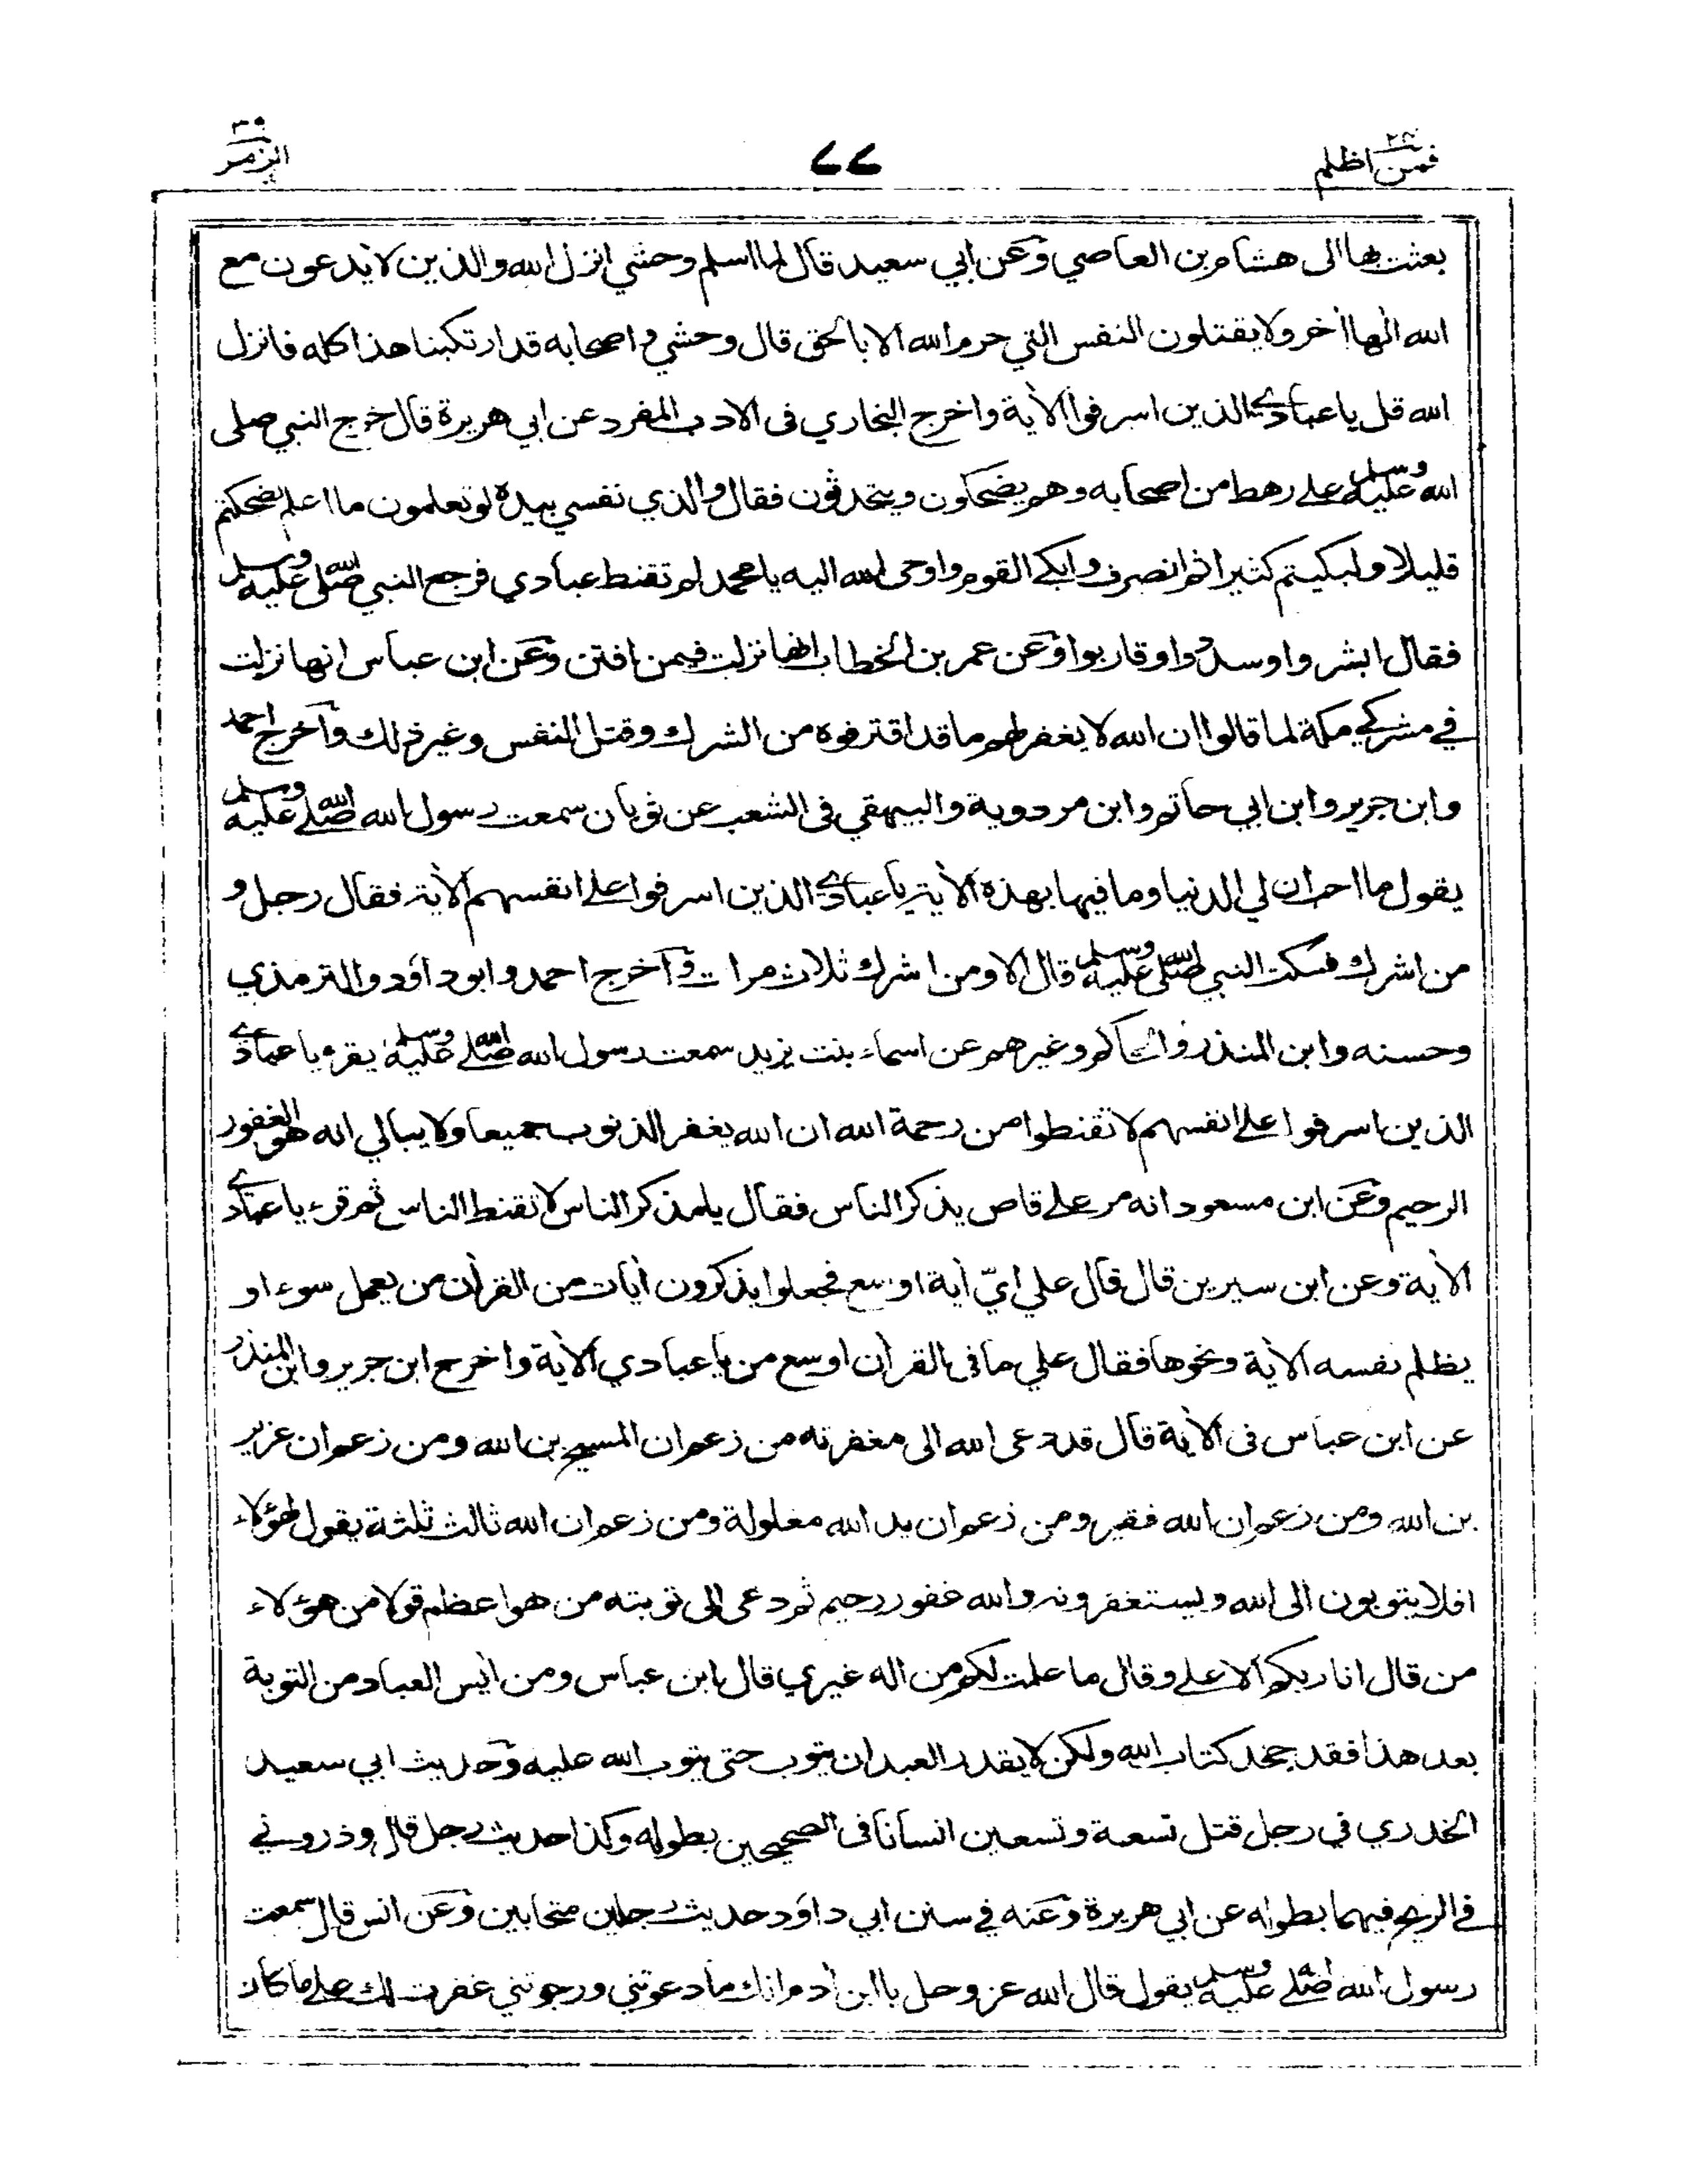 فمن اظلم ٢٤
٤٤
الزمر ٣٩
بعثت بها الى هشام بن العاصي وعن ابي سعيد قال لما اسلم وحشي انزل الله والذين لا يدعون مع
الله الٰها اٰخر ولا يقتلون النفس التي حرم الله الا بالحق قال وحشي واصحابه قد ارتكبنا هذا كله فانزل
الله قل يا عبادي الذين اسرفوا الاٰية واخرج البخاري فى الادب المفرد عن ابي هريرة قال خرج النبي صلى
الله عليه وسلم على رهط من اصحابه وهم يضحكون ويتحدثون فقال والذي نفسي بيده لو تعلمون ما اعلم لضحكتم
قليلا ولبكيتم كثيرا ثم انصرف وابكى القوم واوحى الله اليه يا محمد لم تقنط عبادي فرجع النبي صلى الله عليه وسلم
فقال ابشروا وسددوا وقاربوا وعن عمر بن الخطاب انها نزلت فيمن افتتن وعن ابن عباس انها نزلت
في مشركي مكة لما قالوا ان الله لا يغفر لهم ما قد اقترفوه من الشرك وقتل النفس وغير ذلك واخرج احمد
وابن جرير وابن ابي حاتم وابن مردوية والبيهقي فى الشعب عن ثوبان سمعت رسول الله صلى الله عليه وسلم
يقول ما احب ان لي الدنيا وما فيها بهذه الاٰية يا عبادي الذين اسرفوا على انفسهم الاٰية فقال رجل و
من اشرك فسكت النبي صلى الله عليه وسلم قال الا ومن اشرك ثلاث مرات واخرج احمد وابو داؤد والترمذي
وحسنه وابن المنذر والحاكم وغيرهم عن اسماء بنت يزيد سمعت رسول الله صلى الله عليه وسلم يقرء يا عبادي
الذين اسرفوا على انفسهم لا تقنطوا من رحمة الله ان الله يغفر الذنوب جميعا ولا يبالي انه هو الغفور
الرحيم وعن ابن مسعود انه مر على قاص يذكر الناس فقال يا مذكر الناس لا تقنط الناس ثم قرء يا عبادي
الاٰية وعن ابن سيرين قال قال علي ايّ اٰية اوسع فجعلوا يذكرون اٰيات من القراٰن من يعمل سوء او
يظلم نفسه الاٰية ونحوها فقال علي ما فى القراٰن اوسع من يا عبادي الاٰية واخرج ابن جرير وابن المنذر
عن ابن عباس فى الاٰية قال قد دعى الله الى مغفرته من زعم ان المسيح بن الله ومن زعم ان عزير
بن الله ومن زعم ان الله فقير ومن زعم ان يد الله مغلولة ومن زعم ان الله ثالث ثلثة يقول لهؤلاء
افلا يتوبون الى الله ويستغفرونه والله غفور رحيم ثم دعى الى توبته من هو اعظم قولا من هؤلاء
من قال انا ربكم الاعلى وقال ما علمت لكم من اله غيري قال ابن عباس ومن اٰيس العباد من التوبة
بعد هذا فقد جحد كتاب الله ولكن لا يقدر العبد ان يتوب حتى يتوب الله عليه وحديث ابي سعيد
الخدري في رجل قتل تسعة وتسعين انسانا فى الصحيحين بطوله وكذا حديث رجل قال وذروني
في الريح فيهما بطوله عن ابي هريرة وعنه في سنن ابي داؤد حديث رجلين متحابين وعن انس قال سمعت
رسول الله صلى الله عليه وسلم يقول قال الله عز وجل يا ابن اٰدم انك ما دعوتني ورجوتني غفرت لك على ما كان